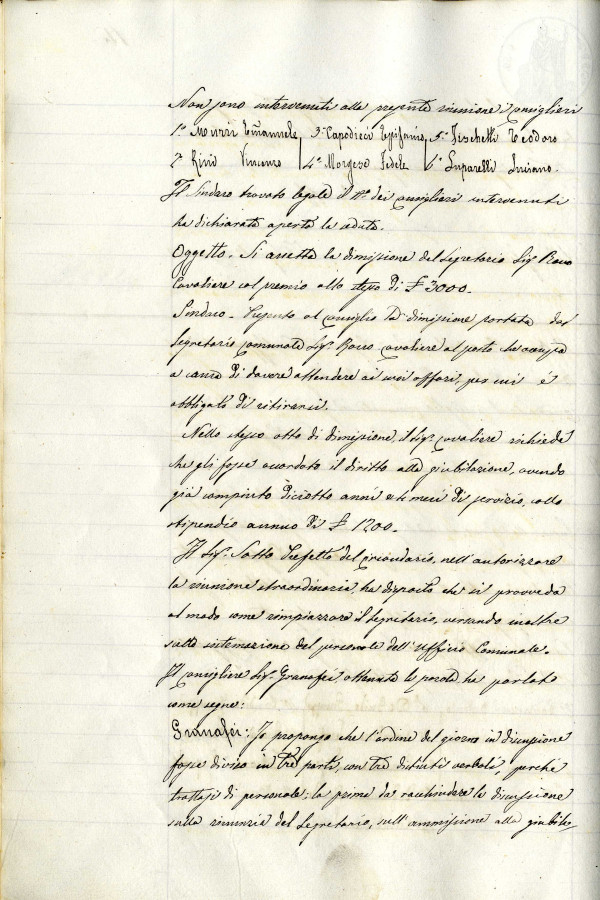 Non sono intervenuti alla presente riunione i Consiglieri
1º Murri Emanuele, 3º Capodieci Epifanio, 5º Teodoro
2º Vincenzo 4º Morgese Fedele 6º Luparelli
Il Sindaco trovato legale il Nº dei consiglieri intervenuti
ha dichiarata aperta la seduta.
Oggetto. Si accetta la dimissione del Segretario Sigr Rocco
Cavaliere col premio allo stesso di £ 3000.
Sindaco. Presento al Consiglio la dimissione portata dal
Segretario Comunale Sigr. Rocco Cavaliere al posto che occupa
a causa di dovere attendere ai suoi affari, per cui é
obbligato di ritirarsi.
Nello stesso atto di dimissione, il Sigr. Cavaliere richiede
che gli fosse accordato il diritto alla giubilazione, avendo
già compiuto diciotto anni e mesi di servizio, collo
stipendio annuo di £ 1200.
Il Sigr. Sotto Prefetto del Circondario, nell'autorizzare
la riunione straordinaria, ha disposto che si provveda
al modo come rimpiazzare il Segretario, versando inoltre
sulla sistemazione del personale dell'Ufficio Comunale.
Il Consigliere Sigr. Granafei, ottenuta la parola, ha parlato
come segue:
Granafei: Io propongo che l'ordine del giorno in discussione
fosse diviso in tre parti, con tre distinti verbali, perché
trattasi di personale; la prima da racchiudere la discussione
sulla rinunzia del Segretario, sull'ammissione alla giubila